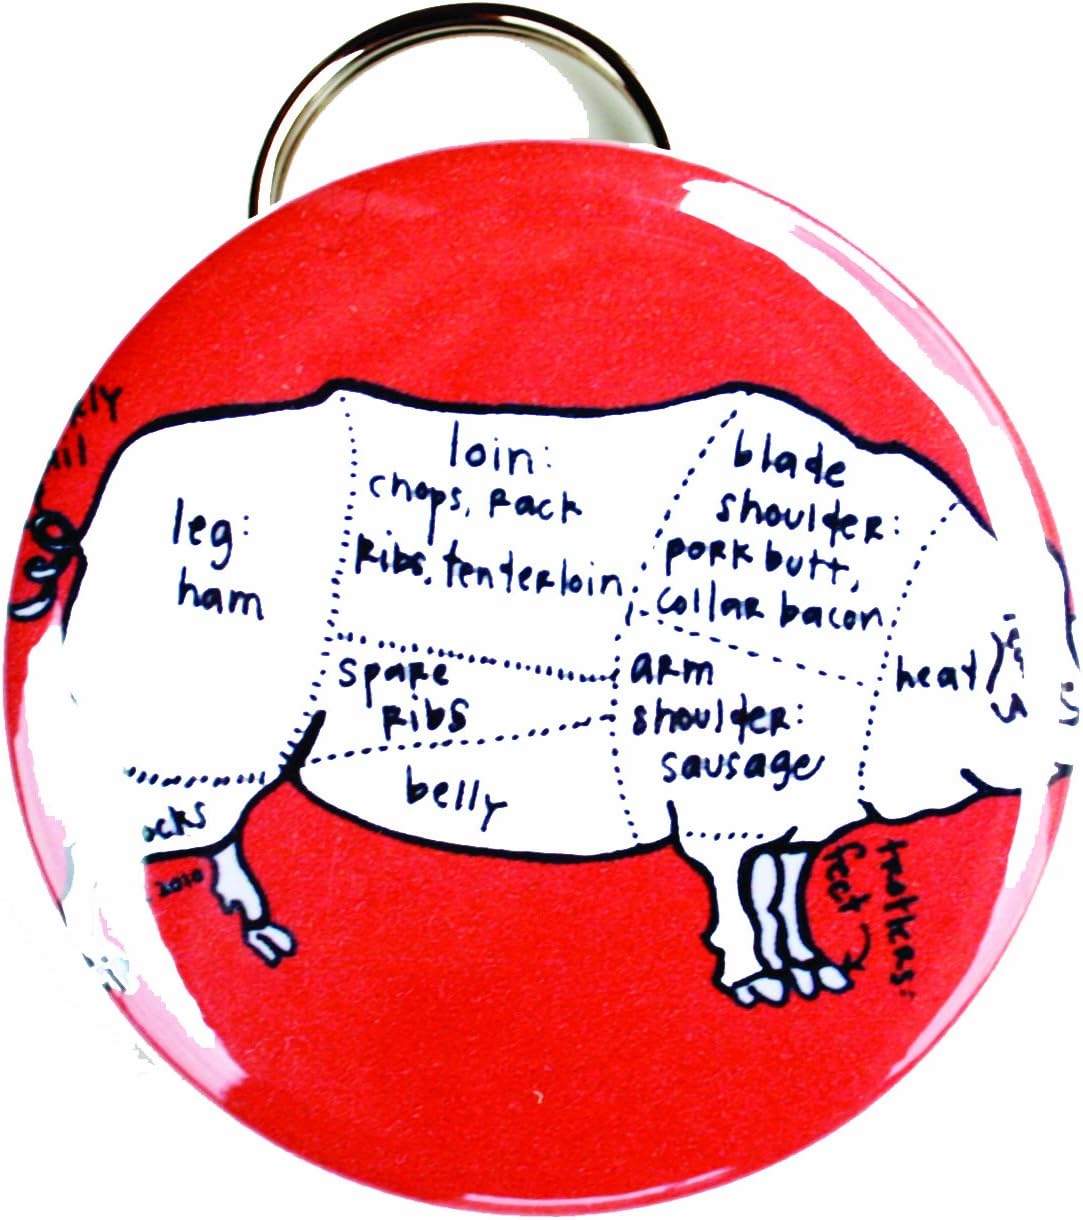 leg:
ham
loin:
chops, rack
ribs, tenderloin
blade
shoulder:
pork butt,
collar bacon
spare
ribs
arm
shoulder:
sausage
head
belly
ocks
2010
trotters:
feet